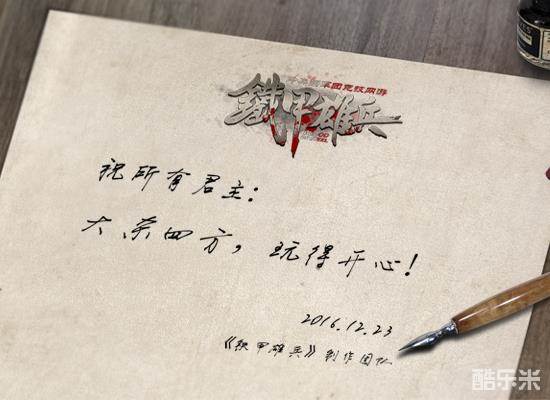 军团竞技网游
鐵甲雄兵
祝所有君主:
大杀四方,玩得开心!
2016.12.23
《铁甲雄兵》制作团队
酷乐米